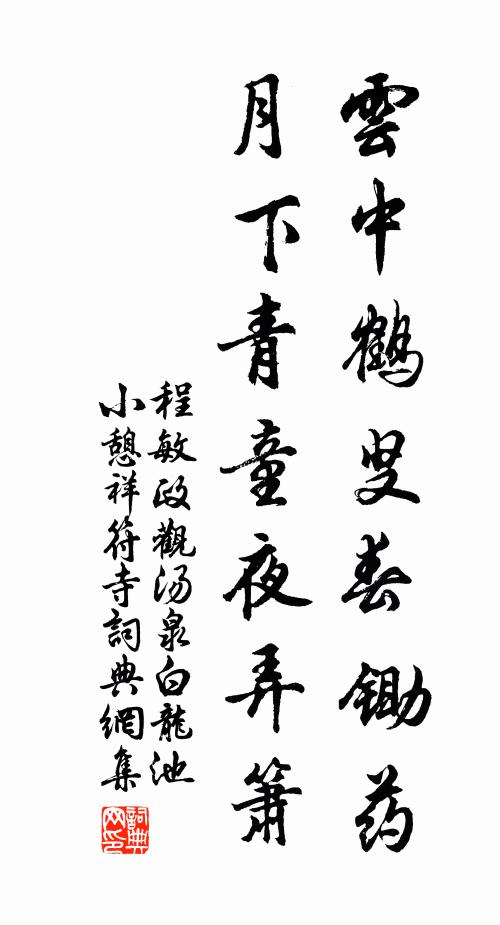 雲中鶴叟春鋤药
月下青童夜弄簫
程敏政觀汤泉白龍池
小憩祥符寺詞典網集
詞典
网印